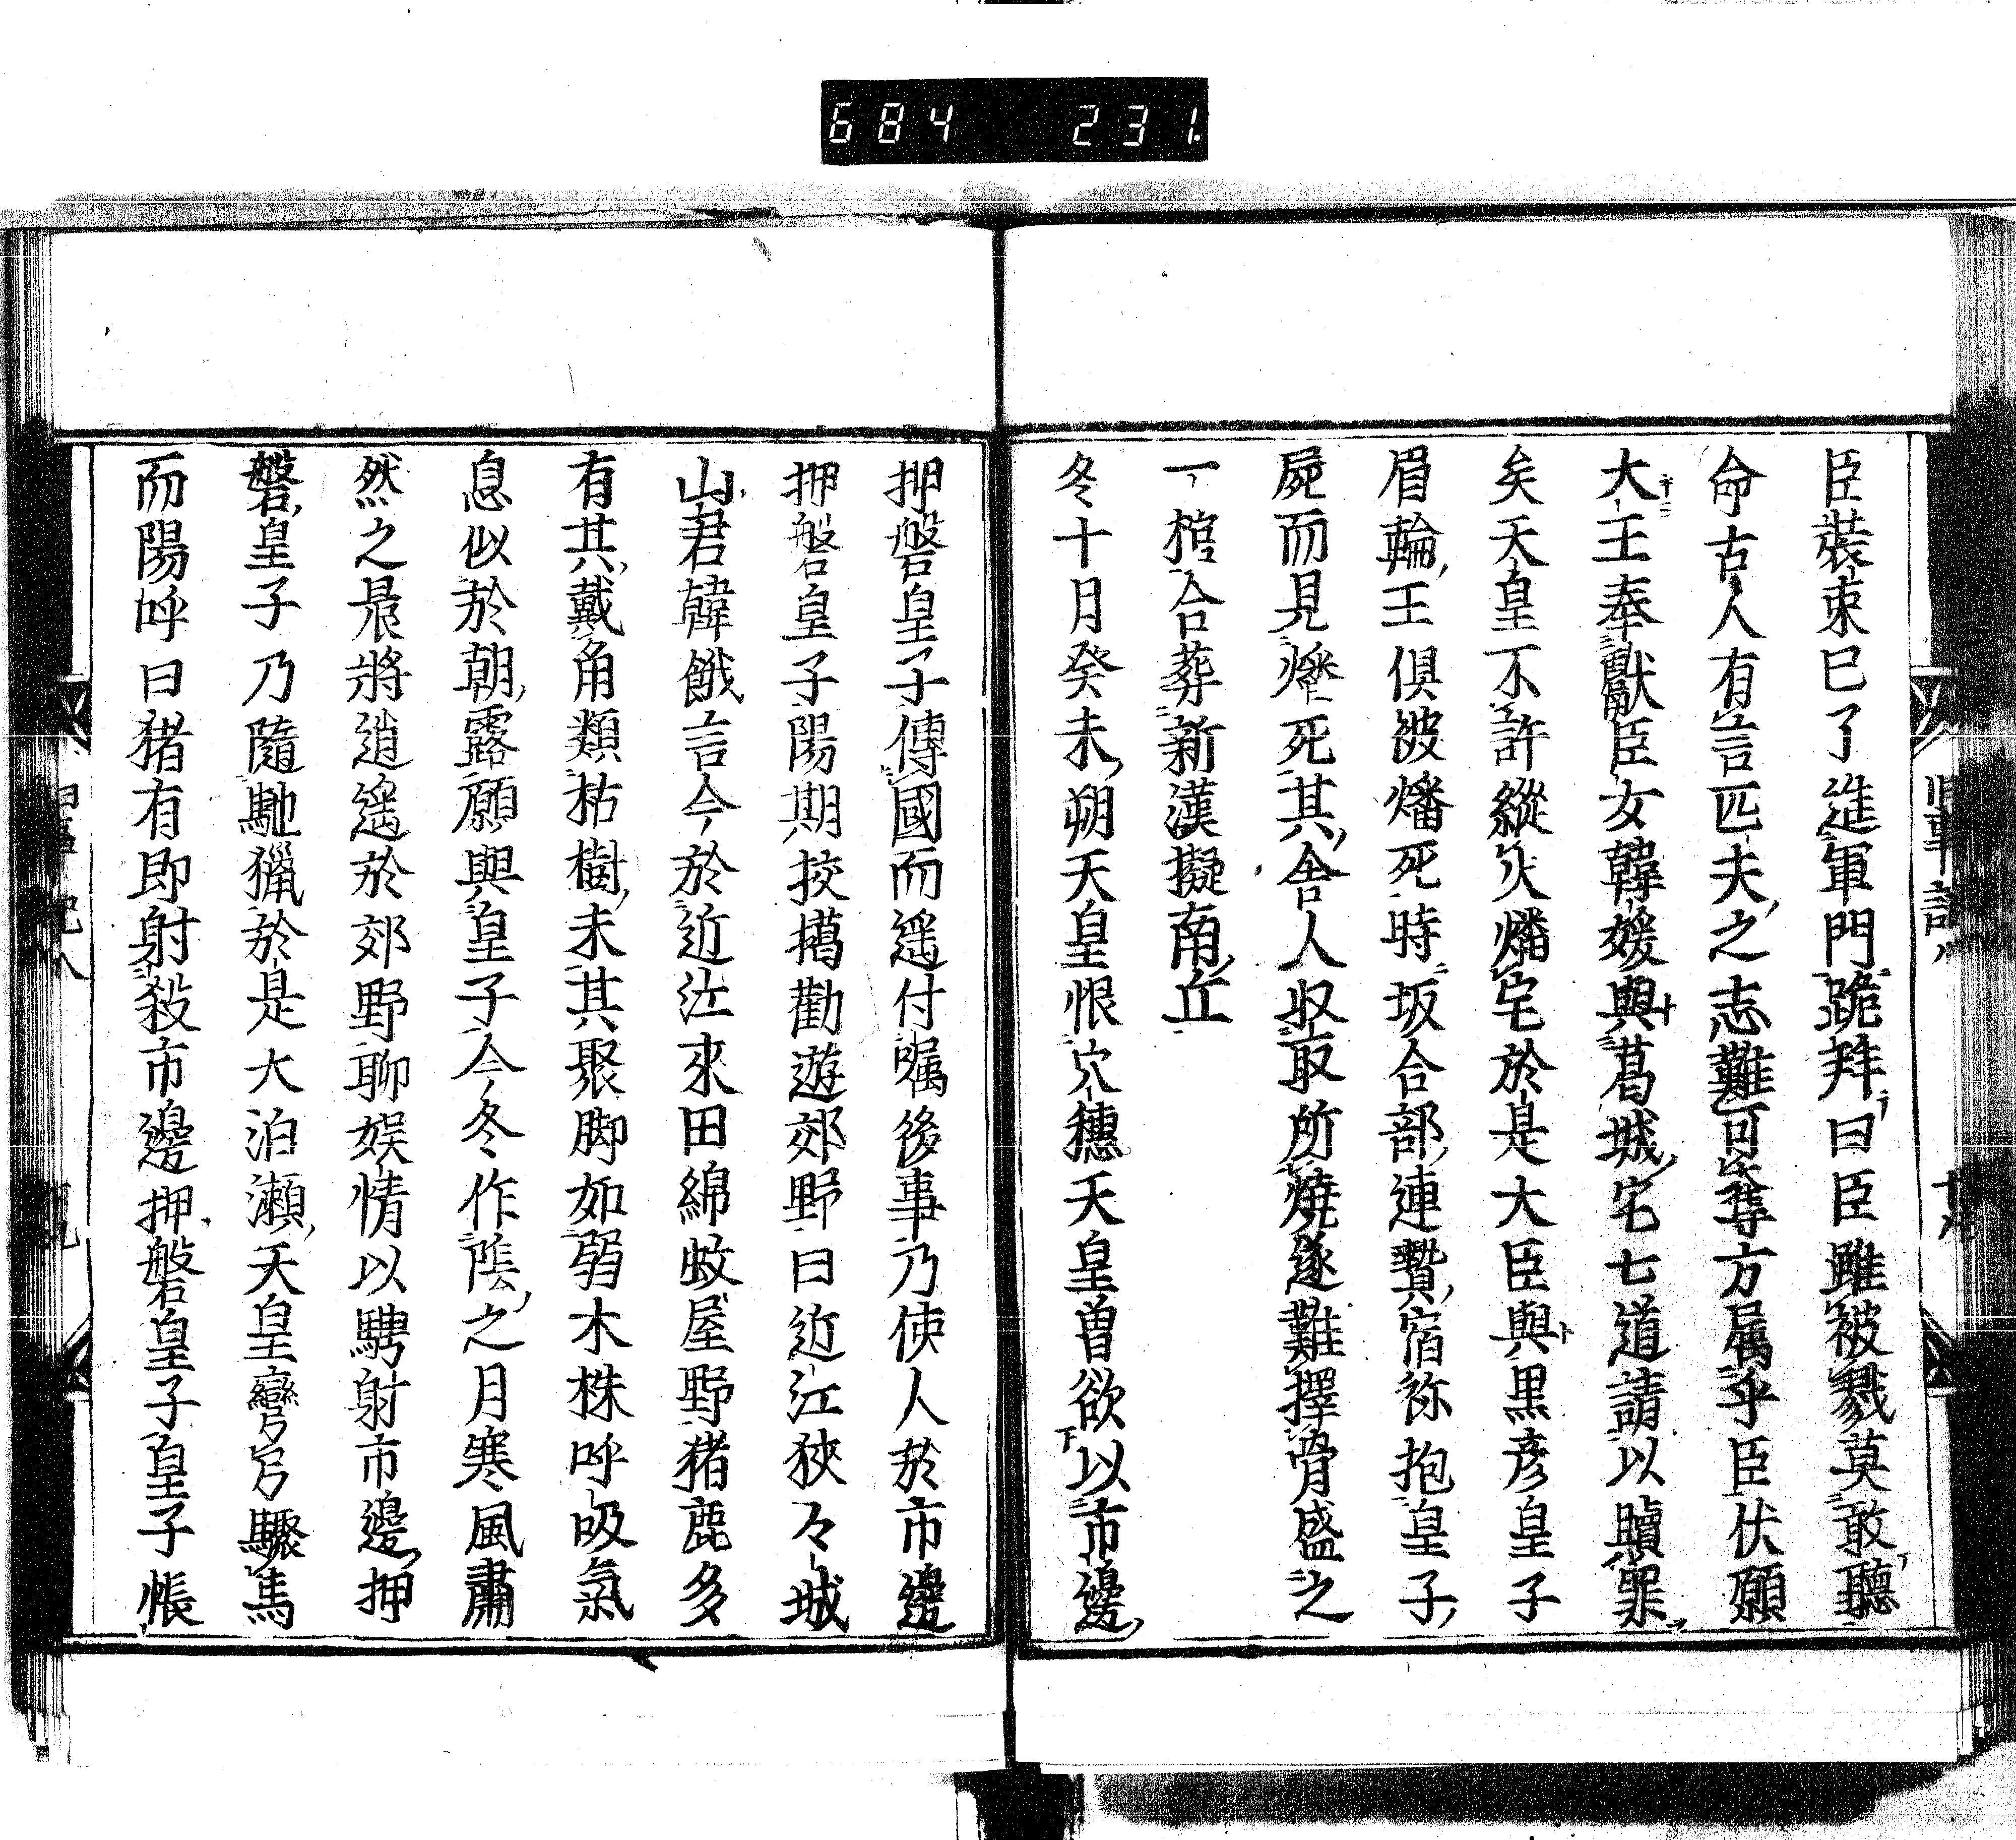 684 231.
臣裝束已了進軍門跪拜曰臣雖被戮莫敢聽
命古人有言匹夫之志難可奪方属乎臣伏願
大王奉獻臣女韓媛與葛城宅七道請以贖罪
矣天皇不許縱火燔宅於是大臣與黒彦皇子
眉輪王倶被燔死時坂合部連贄宿祢抱皇子
屍而見燔死其舎人収取所燒遂難擇骨盛之
一棺合葬新漢擬南丘
冬十月癸未朔天皇恨穴穗天皇曽欲以市邊
押磐皇子傳國而遥付嘱後事乃使人於市邊
押磐皇子陽期挍獦勸遊郊野曰近江狹々城
山君韓帒言今於近江來田綿蚊屋野猪鹿多
有其戴角類枯樹末其聚脚如弱木株呼吸氣
息似於朝露願與皇子今冬作陰之月寒風肅
然之晨將逍遥於郊野聊娱情以騁射市邊押
磐皇子乃隨馳獵於是大泊瀬天皇彎弓驟馬
而陽呼曰猪有即射殺市邊押磐皇子皇子帳